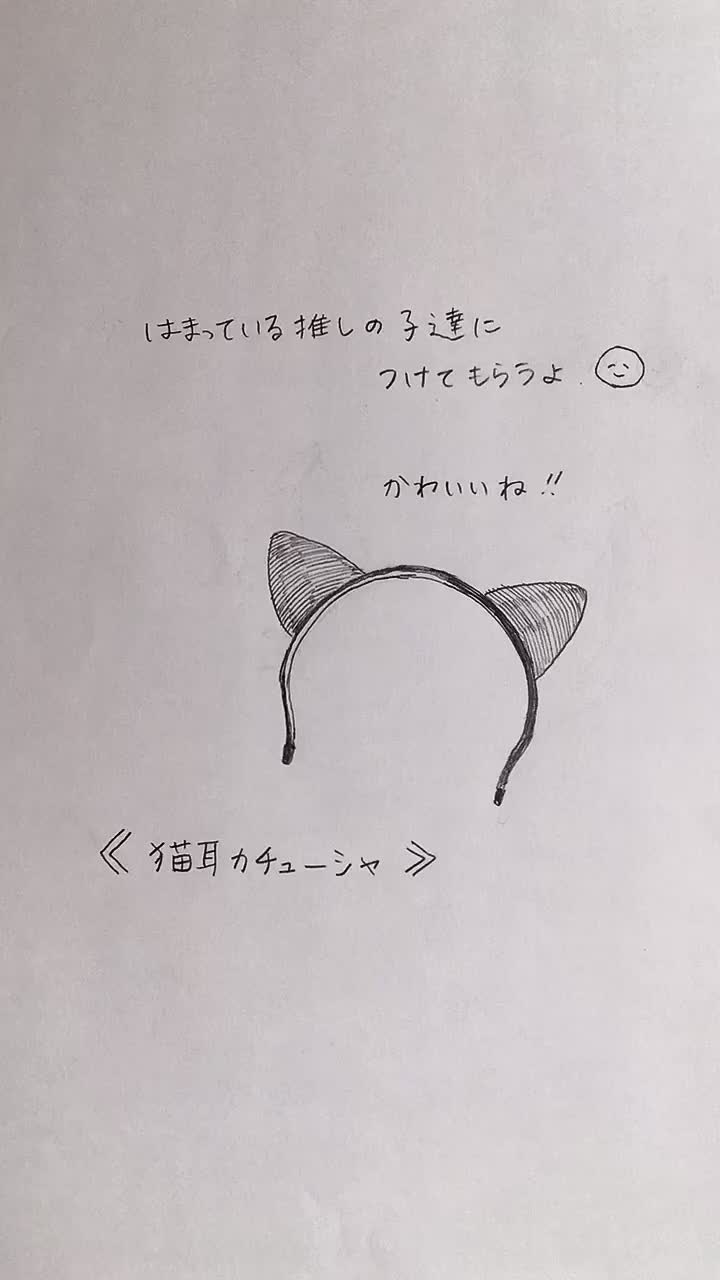 はまっている推しの子達に
つけてもらうよ.
かわいいね!!
《 猫耳カチューシャ 》